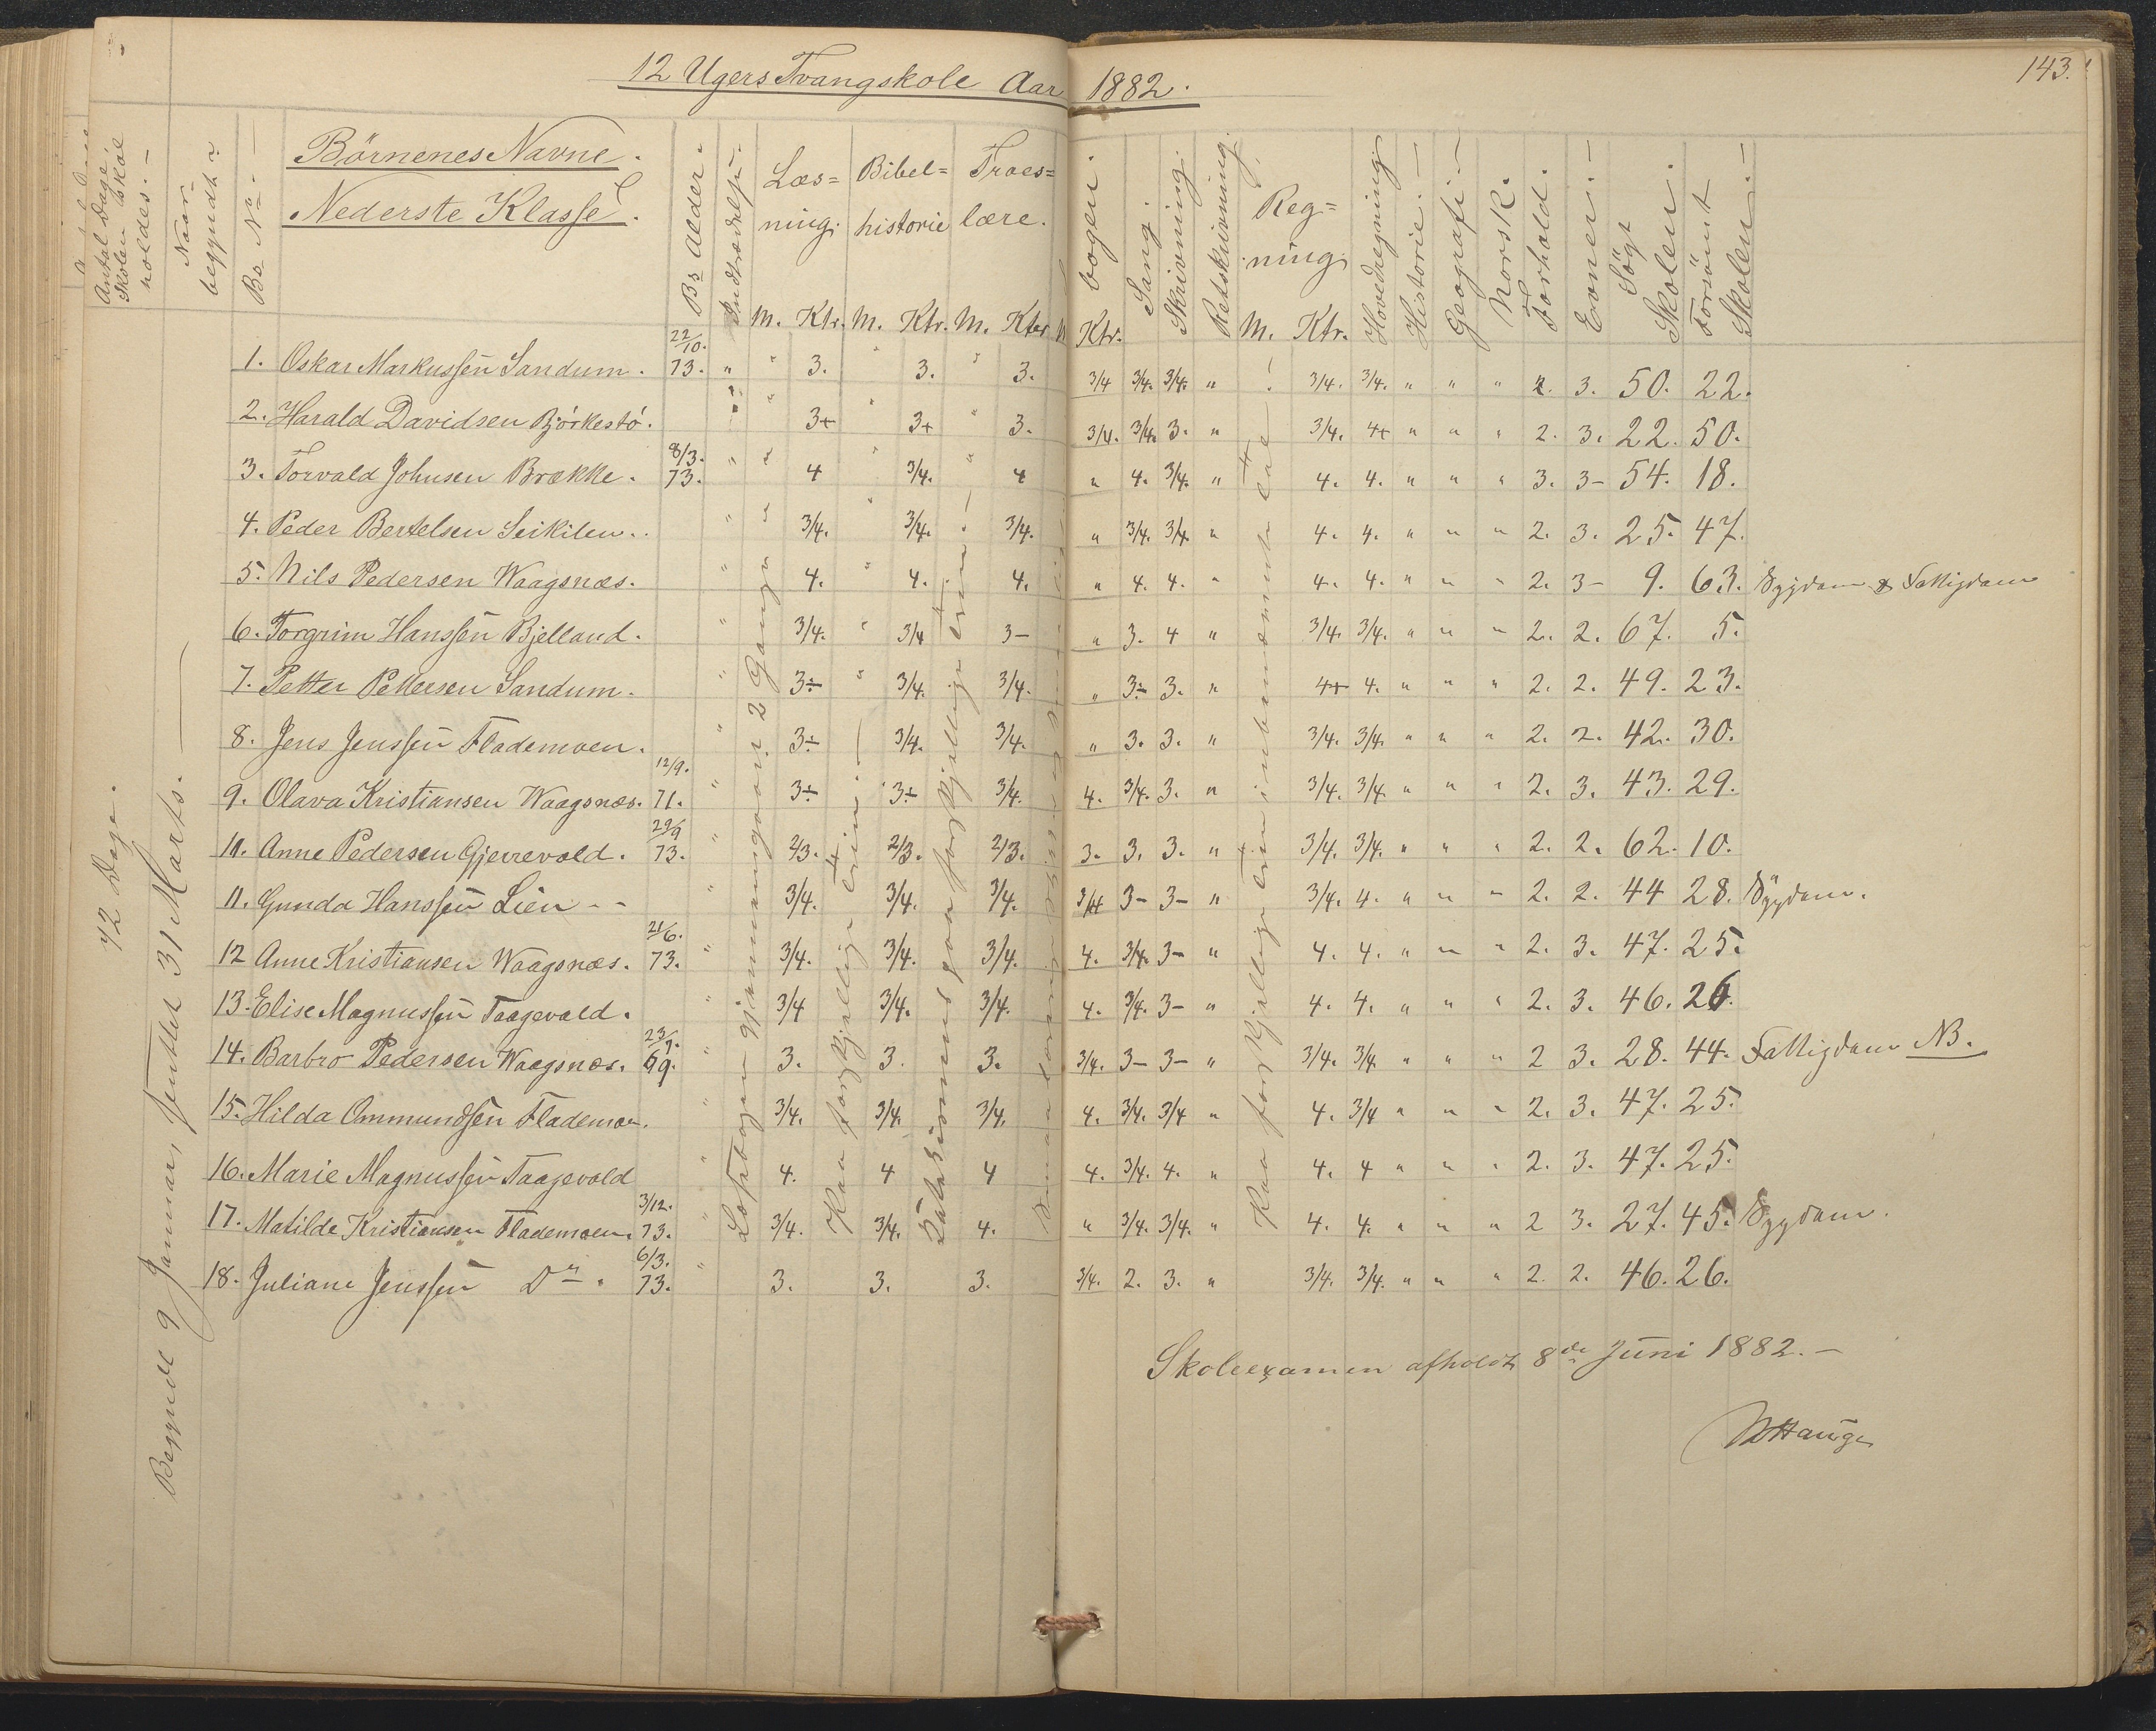 12 Ugers Tvangskole Aar 1882.
143.
Antal Dage Skolen skal holdes. —
Naar begyndt
Bs No. —
Börnenes Navne.
Nederste Klasse.
Bs Alder.
Indtrædelse.
Læs=ning. M. Ktr.
Bibel=historie M. Ktr.
Troes=lære. M. Ktr.
bogen. Ktr.
Sang.
Skrivning.
Retskrivning.
Reg=ning M. Ktr.
Hovedregning
Historie. —
Geografi —
Norsk.
Forhold.
Evner. —
Sögt Skolen.
Forsömt Skolen. —
72 Dage.
Begyndt 9 Januar, sluttet 31 Marts. —
1. Oskar Markussen Sandum. 22/10. 73. " " 3. " 3. " 3. 3/4 3/4. 3/4. " 3/4. 3/4. " " " 2. 3. 50. 22.
2. Harald Davidsen Björkestö. " 3+ " 3+ " 3. 3/4. 3/4. 3. " 3/4. 4+ " " " 2. 3. 22. 50.
3. Torvald Johnsen Brække. 8/3. 73. " " 4 " 3/4. " 4 " 4. 3/4. " 4. 4. " " " 3. 3- 54. 18.
4. Peder Bertelsen Seikilen. " " 3/4. " 3/4. 3/4. " 3/4. 3/4. " 4. 4. " " " 2. 3. 25. 47.
5. Nils Pedersen Waagsnæs. " 4. " 4. 4. " 4. 4. " 4. 4. " " " 2. 3- 9. 63. Sygdom & Fattigdom
6. Torgrim Hanssen Bjelland. " 3/4. " 3/4 3- " 3. 4 " 3/4. 3/4. " " " 2. 2. 67. 5.
7. Petter Pettersen Sandum. " 3÷ " 3/4. 3/4. " 3÷ 3. " 4+ 4. " " " 2. 2. 49. 23.
8. Jens Jenssen Flademoen. " 3÷ 3/4. 3/4. " 3. 3. " 3/4. 3/4. " " " 2. 2. 42. 30.
9. Olava Kristiansen Waagsnæs. 12/9. 71. " 3÷ 3÷ 3/4. 4. 3/4. 3. " 3/4. 3/4. " " " 2. 3. 43. 29.
10. Anne Pedersen Gjerrevold. 29/9 73. " 2/3. 2/3. 2/3. 3. 3. 3. " 3/4. 3/4. " " " 2. 2. 62. 10.
11. Gunda Hanssen Lien - - " 3/4. 3/4. 3/4. 3/4 3- 3- " 3/4. 4. " " " 2. 2. 44 28. Sygdom.
12 Anne Kristiansen Waagsnæs. 21/6. 73. " 3/4. 3/4. 3/4. 4. 3/4. 3- " 4. 4. " " " 2. 3. 47. 25.
13. Elise Magnussen Taagevold. " 3/4 3/4. 3/4. 4. 3/4. 3- " 4. 4. " " " 2. 3. 46. 26.
14. Barbro Pedersen Waagsnæs. 23/9. 69. " 3. 3. 3. 3/4. 3- 3- " 3/4. 3/4 " " " 2 3. 28. 44. Fattigdom NB.
15. Hilda Ommundsen Flademoen. " 3/4. 3/4. 3/4. 4. 3/4. 3/4 " 4. 3/4 " " " 2. 3. 47. 25.
16. Marie Magnussen Taagevold " 4. 4 4 4. 3/4. 4. " 4. 4 " " " 2. 3. 47. 25.
17. Matilde Kristiansen Flademoen. 3/12. 73. " 3/4. 3/4. 4. " 3/4. 3/4. " 4. 4. " " " 2 3. 27. 45. Sygdom.
18. Juliane Jenssen Do. 6/3. 73. " 3. 3. 3. 3/4. 2. 3. " 3/4. 3/4. " " " 2. 2. 46. 26.
Læsebogen gjennemgaaet 2 Gange
Kun forskjellige Trin. —
forskjellige Trin. —
Kun forskjellige Trin
Skoleexamen afholdt 8de Juni 1882. —
Hauge